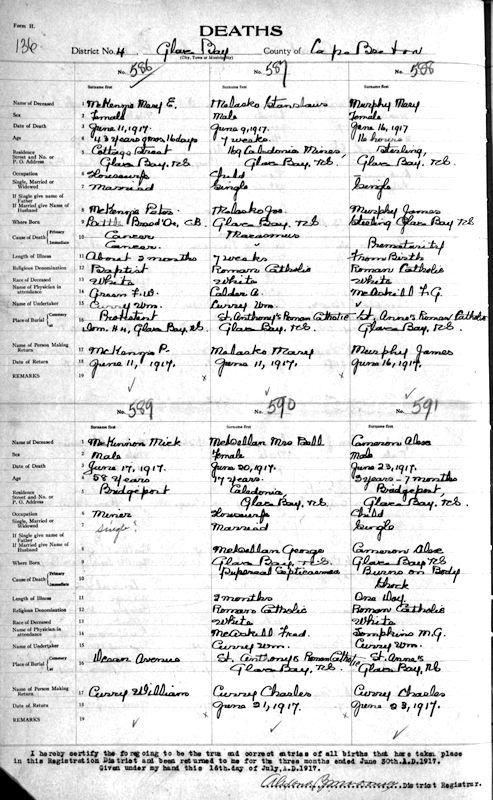 Form H.
DEATHS
136
District No. 4 Glace Bay County of Cape Breton
(City, Town or Municipality)
No. 586 No. 587 No. 588
Surname first Surname first Surname first
Name of Deceased 1 McKenzie Mary E. Malasko Stanslaus Murphy Mary
Sex 2 Female Male Female
Date of Death 3 June 11, 1917. June 9, 1917. June 16, 1917
Age 4 43 years 9 mos. 16 days 7 weeks 16 hours
Residence Street and No. or P. O. Address 5 Cottage Street 169 Caledonia Mines, Sterling,
Glace Bay, N.S. Glace Bay, N.S. Glace Bay, N.S.
Occupation 6 Housewife Child
Single, Married or Widowed 7 Married Single Single
If Single give Name of Father
If Married give Name of Husband 8 McKenzie Peter Malasko Joe. Murphy James
Where Born 9 Broad Or, C.B. Glace Bay, N.S. Sterling Glace Bay N.S.
Cause of Death Primary 10 Cancer Marasmus
Immediate Cancer. " Prematurity
Length of Illness 11 About 2 months 7 weeks From Birth
Religious Denomination 12 Baptist Roman Catholic Roman Catholic
Race of Deceased 13 White White White
Name of Physician in attendance 14 Green F.W. Calder A. McAskill F.G.
Name of Undertaker 15 Curry Wm. Curry Wm.
Place of Burial Cemetery at 16 Protestant St. Anthony's Roman Catholic St. Anne's Roman Catholic
Dom. #4, Glace Bay, N.S. Glace Bay, N.S. Glace Bay, N.S.
Name of Person Making Return 17 McKenzie P. Malasko Mary Murphy James
Date of Return 18 June 11, 1917. June 11, 1917. June 16, 1917.
REMARKS 19
No. 589 No. 590 No. 591
Surname first Surname first Surname first
Name of Deceased 1 McKinnon Mick McLellan Mrs Bell Cameron Alex
Sex 2 Male Female Male
Date of Death 3 June 17, 1917. June 20, 1917. June 23, 1917.
Age 4 58 years 17 years. 3 years - 7 months
Residence Street and No. or P. O. Address 5 Bridgeport Caledonia Bridgeport,
Glace Bay, N.S. Glace Bay, N.S.
Occupation 6 Miner Housewife Child
Single, Married or Widowed 7 Single? Married Single
If Single give Name of Father
If Married give Name of Husband 8 McLellan George Cameron Alex
Where Born 9 Glace Bay, N.S. Glace Bay N.S.
Cause of Death Primary 10 Pupereal Septicaemea Burns on Body
Immediate Shock
Length of Illness 11 2 months One Day
Religious Denomination 12 Roman Catholic Roman Catholic
Race of Deceased 13 White White
Name of Physician in attendance 14 McAskill Fred. Tompkins M.G.
Name of Undertaker 15 Curry Wm. Curry Wm.
Place of Burial Cemetery at 16 Avenue St. Anthony's Roman Catholic St. Anne's
Glace Bay, N.S. Glace Bay, N.S.
Name of Person Making Return 17 Curry William Curry Charles Curry Charles
Date of Return 18 June 21, 1917. June 23, 1917.
REMARKS 19
I hereby certify the forgoing to be the true and correct entries of all births that have taken place
in this Registration District and been returned to me for the three months ended June 30th.A.D.1917.
Given under my hand this 16th.day of July,A.D.1917.
District Registrar.